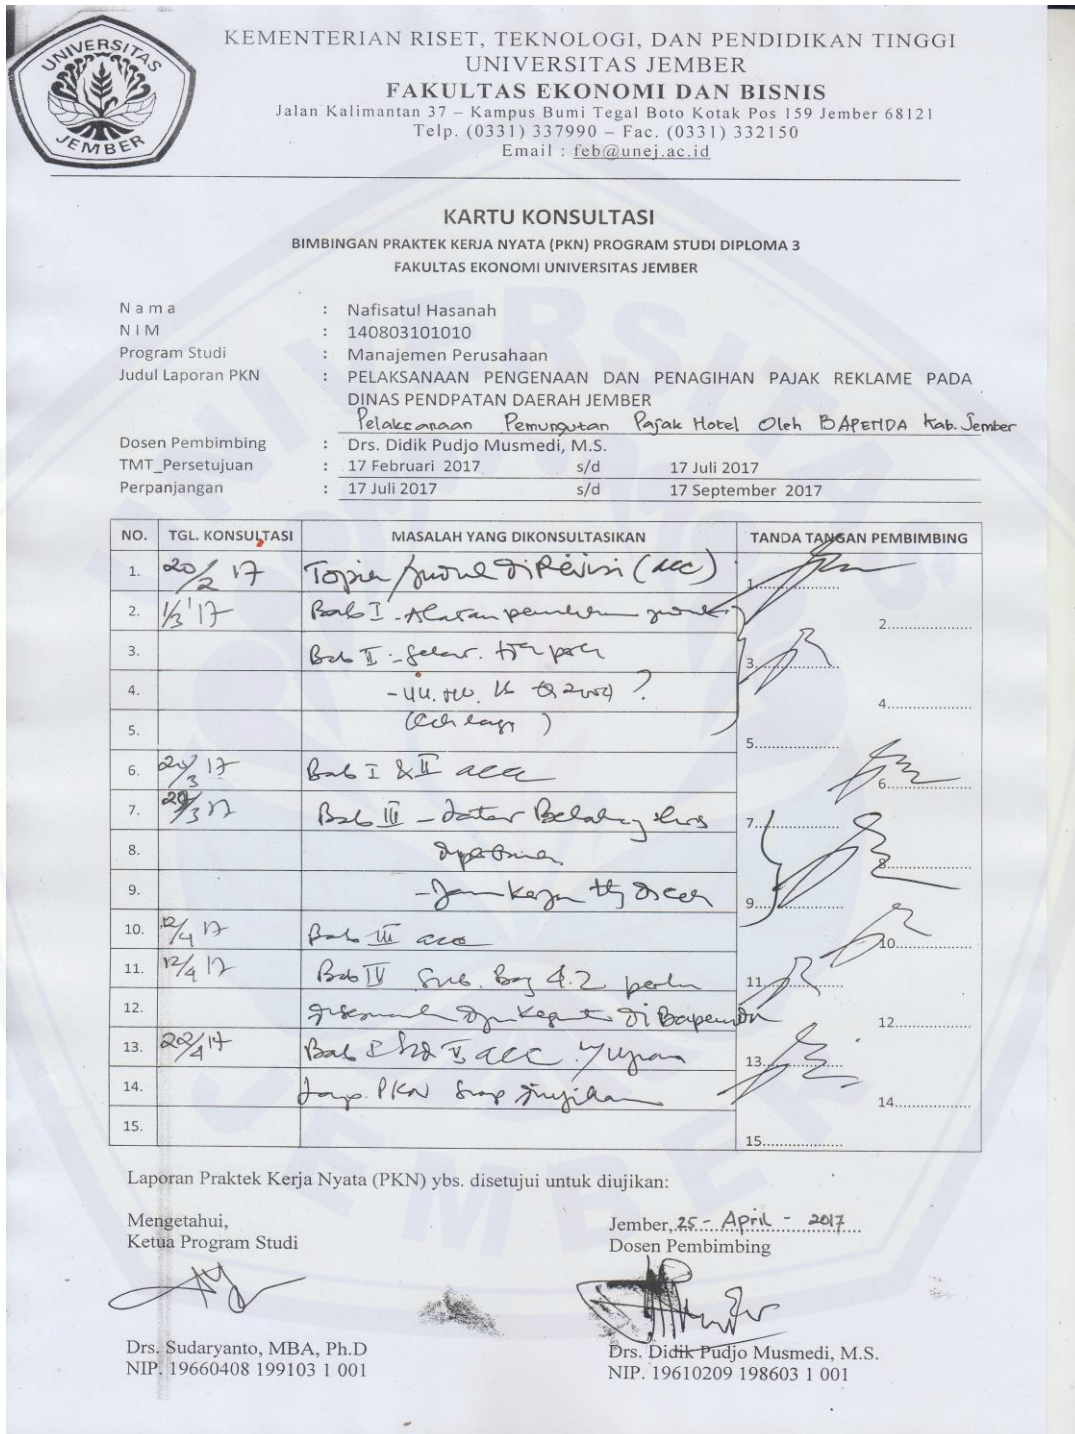 UNIVERSITAS
JEMBER
KEMENTERIAN RISET, TEKNOLOGI, DAN PENDIDIKAN TINGGI
UNIVERSITAS JEMBER
FAKULTAS EKONOMI DAN BISNIS
Jalan Kalimantan 37 – Kampus Bumi Tegal Boto Kotak Pos 159 Jember 68121
Telp. (0331) 337990 – Fac. (0331) 332150
Email : feb@unej.ac.id
KARTU KONSULTASI
BIMBINGAN PRAKTEK KERJA NYATA (PKN) PROGRAM STUDI DIPLOMA 3
FAKULTAS EKONOMI UNIVERSITAS JEMBER
N a m a : Nafisatul Hasanah
N I M : 140803101010
Program Studi : Manajemen Perusahaan
Judul Laporan PKN : PELAKSANAAN PENGENAAN DAN PENAGIHAN PAJAK REKLAME PADA
DINAS PENDPATAN DAERAH JEMBER
Pelaksanaan Pemungutan Pajak Hotel Oleh BAPENDA Kab. Jember
Dosen Pembimbing : Drs. Didik Pudjo Musmedi, M.S.
TMT_Persetujuan : 17 Februari 2017 s/d 17 Juli 2017
Perpanjangan : 17 Juli 2017 s/d 17 September 2017
NO. TGL. KONSULTASI MASALAH YANG DIKONSULTASIKAN TANDA TANGAN PEMBIMBING
1. 20/2 17 (acc) 1..................
2. 1/3 '17 Bab I - Alasan 2..................
3. Bab II - 3..................
4. ? 4..................
5. 5..................
6. /3 17 Bab I & II acc 6..................
7. /3 17 Bab III - Latar Belakang 7..................
8. 8..................
9. - 9..................
10. /4 17 Bab III acc 10..................
11. 12/4 17 Bab IV Sub. Bag 4.2 perlu 11..................
12. di Bapenda 12..................
13. 22/4 17 Bab I V acc 13..................
14. PKN siap diujikan 14..................
15. 15..................
Laporan Praktek Kerja Nyata (PKN) ybs. disetujui untuk diujikan:
Mengetahui,
Ketua Program Studi
Jember, 25 - April - 2017
Dosen Pembimbing
Drs. Sudaryanto, MBA, Ph.D
NIP. 19660408 199103 1 001
Drs. Didik Pudjo Musmedi, M.S.
NIP. 19610209 198603 1 001